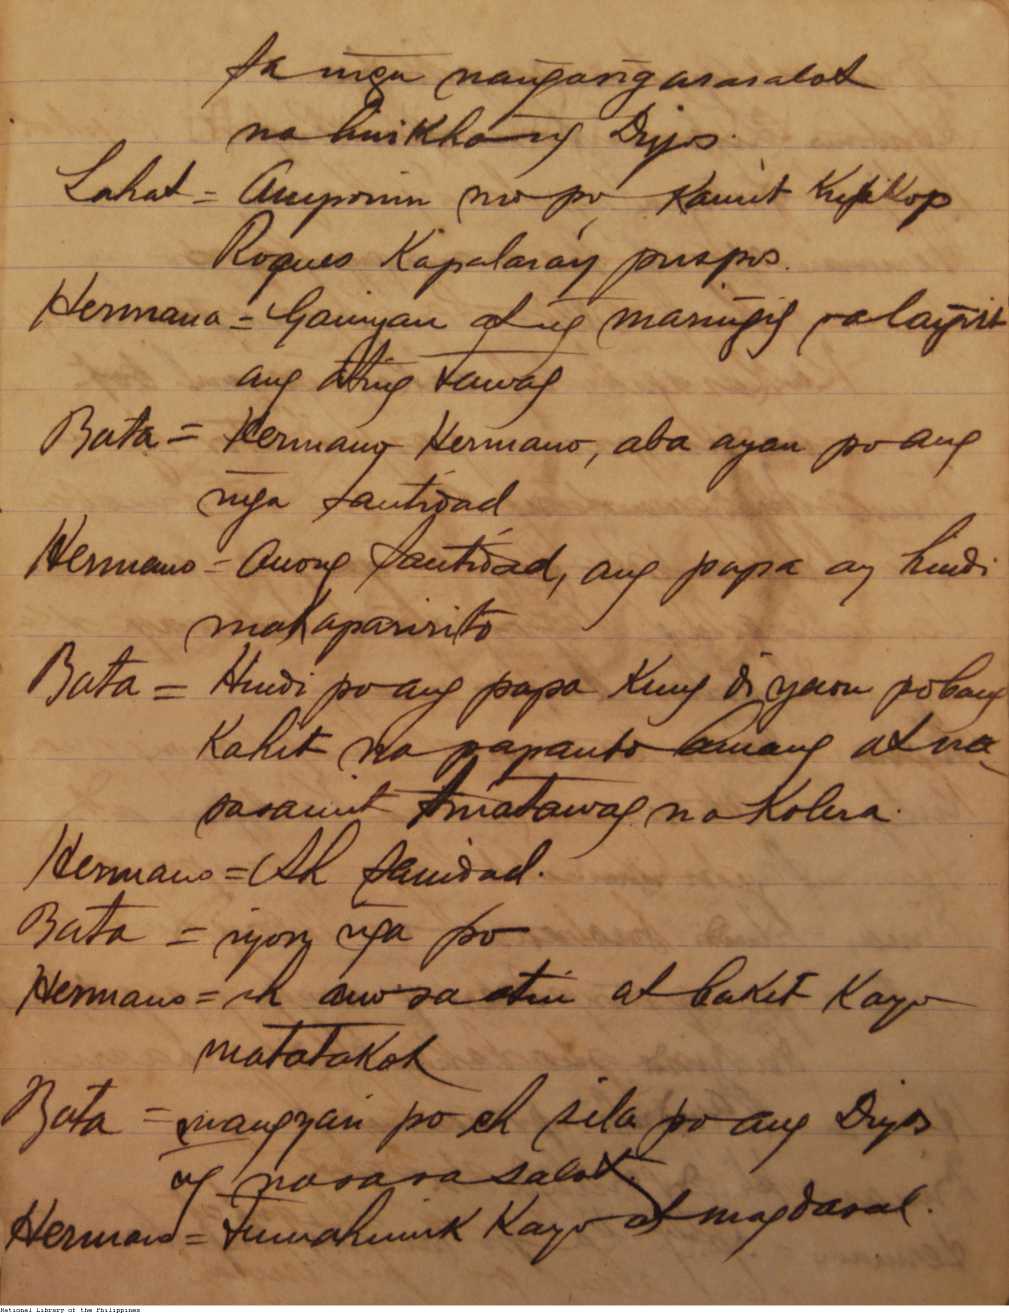 sa mga nangangasasalot
na linikha ng Diyos.
Lahat = Ampomin mo po kamit kupkop
Roques kapalaráy puspos.
Hermano = Ganiyan at ng maringig sa langit
ang ating tawag
Bata = Hermano Hermano, aba ayan po ang
mga santidad
Hermano = Anong santidad, ang papa ay hindi
makaparirito
Bata = Hindi po ang papa kung di yaon pobang
kahit na papaanto amang at na
sasamit tinatawag na kolera.
Hermano = Ah sanidad.
Bata = iyon nga po
Hermano = eh ano sa atin at bakit kayo
matatakot
Bata = mangyari po eh sila po ang Diyos
ng nasasasalot.
Hermano = Tumahimik kayo at magdasal.
National Library of the Philippines